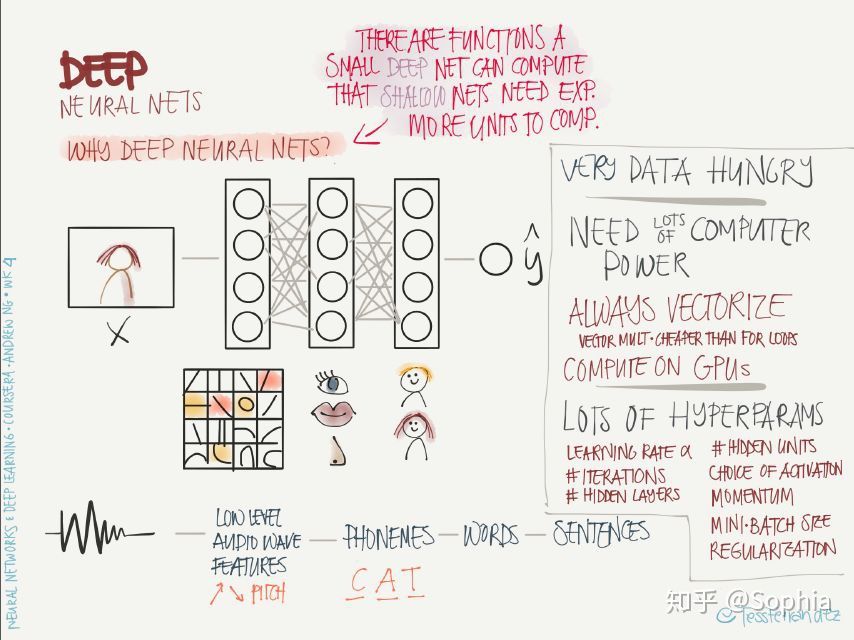 DEEP
NEURAL NETS
WHY DEEP NEURAL NETS?
THERE ARE FUNCTIONS A
SMALL DEEP NET CAN COMPUTE
THAT SHALLOW NETS NEED EXP.
MORE UNITS TO COMP.
X
ŷ
VERY DATA HUNGRY
NEED LOTS OF COMPUTER
POWER
ALWAYS VECTORIZE
VECTOR MULT. CHEAPER THAN FOR LOOPS
COMPUTE ON GPUs
LOTS OF HYPERPARAMS
LEARNING RATE α
# ITERATIONS
# HIDDEN LAYERS
# HIDDEN UNITS
CHOICE OF ACTIVATION
MOMENTUM
MINI-BATCH SIZE
REGULARIZATION
LOW LEVEL
AUDIO WAVE
FEATURES
↗ ↘ PITCH
PHONEMES
C A T
WORDS
SENTENCES
NEURAL NETWORKS & DEEP LEARNING • COURSERA • ANDREW NG • WK 4
知乎 @Sophia
©Tessferrandez